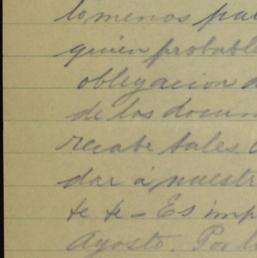 lo menos pue
quien probable
obligacion d
de los docum
recabe tales
dar á nuestr
te te - Es imp
Agosto. Por l